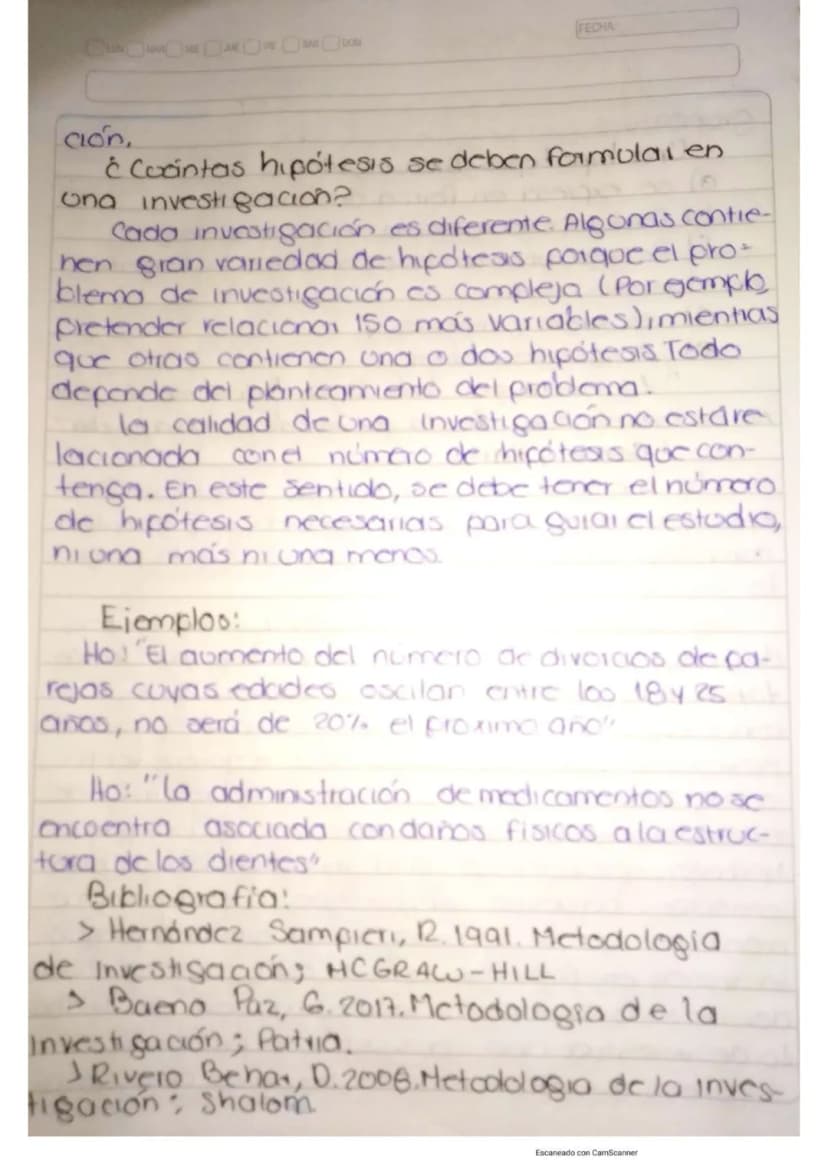 FECHA:
LUN MAR MIE JUE VIE SAB DOM
ción.
¿Cuántas hipótesis se deben formular en
una investigación?
Cada investigación es diferente. Algunas contie-
nen gran variedad de hipótesis porque el pro-
blema de investigación es compleja (Por ejemplo
pretender relacionar 150 más variables), mientras
que otras contienen una o dos hipótesis Todo
depende del planteamiento del problema.
la calidad de una investigación no está re
lacionada con el número de hipótesis que con-
tenga. En este sentido, se debe tener el número
de hipótesis necesarias para guiar el estudio,
ni una más ni una menos.
Ejemplos:
Ho: "El aumento del número de divorcios de pa-
rejas cuyas edades oscilan entre los 18 y 25
años, no será de 20% el proximo año"
Ho: "la administración de medicamentos no se
encoentra asociada con daños fisicos a la estruc-
tura de los dientes"
Bibliografia:
> Hernández Sampieri, R. 1991. Metodologia
de Investigación; MCGRAW-HILL
> Baena Paz, G. 2017. Metodologia de la
Investigación; Patria.
> Rivero Behar, D. 2008. Metodologia de la inves-
tigación; Shalom
Escaneado con CamScanner